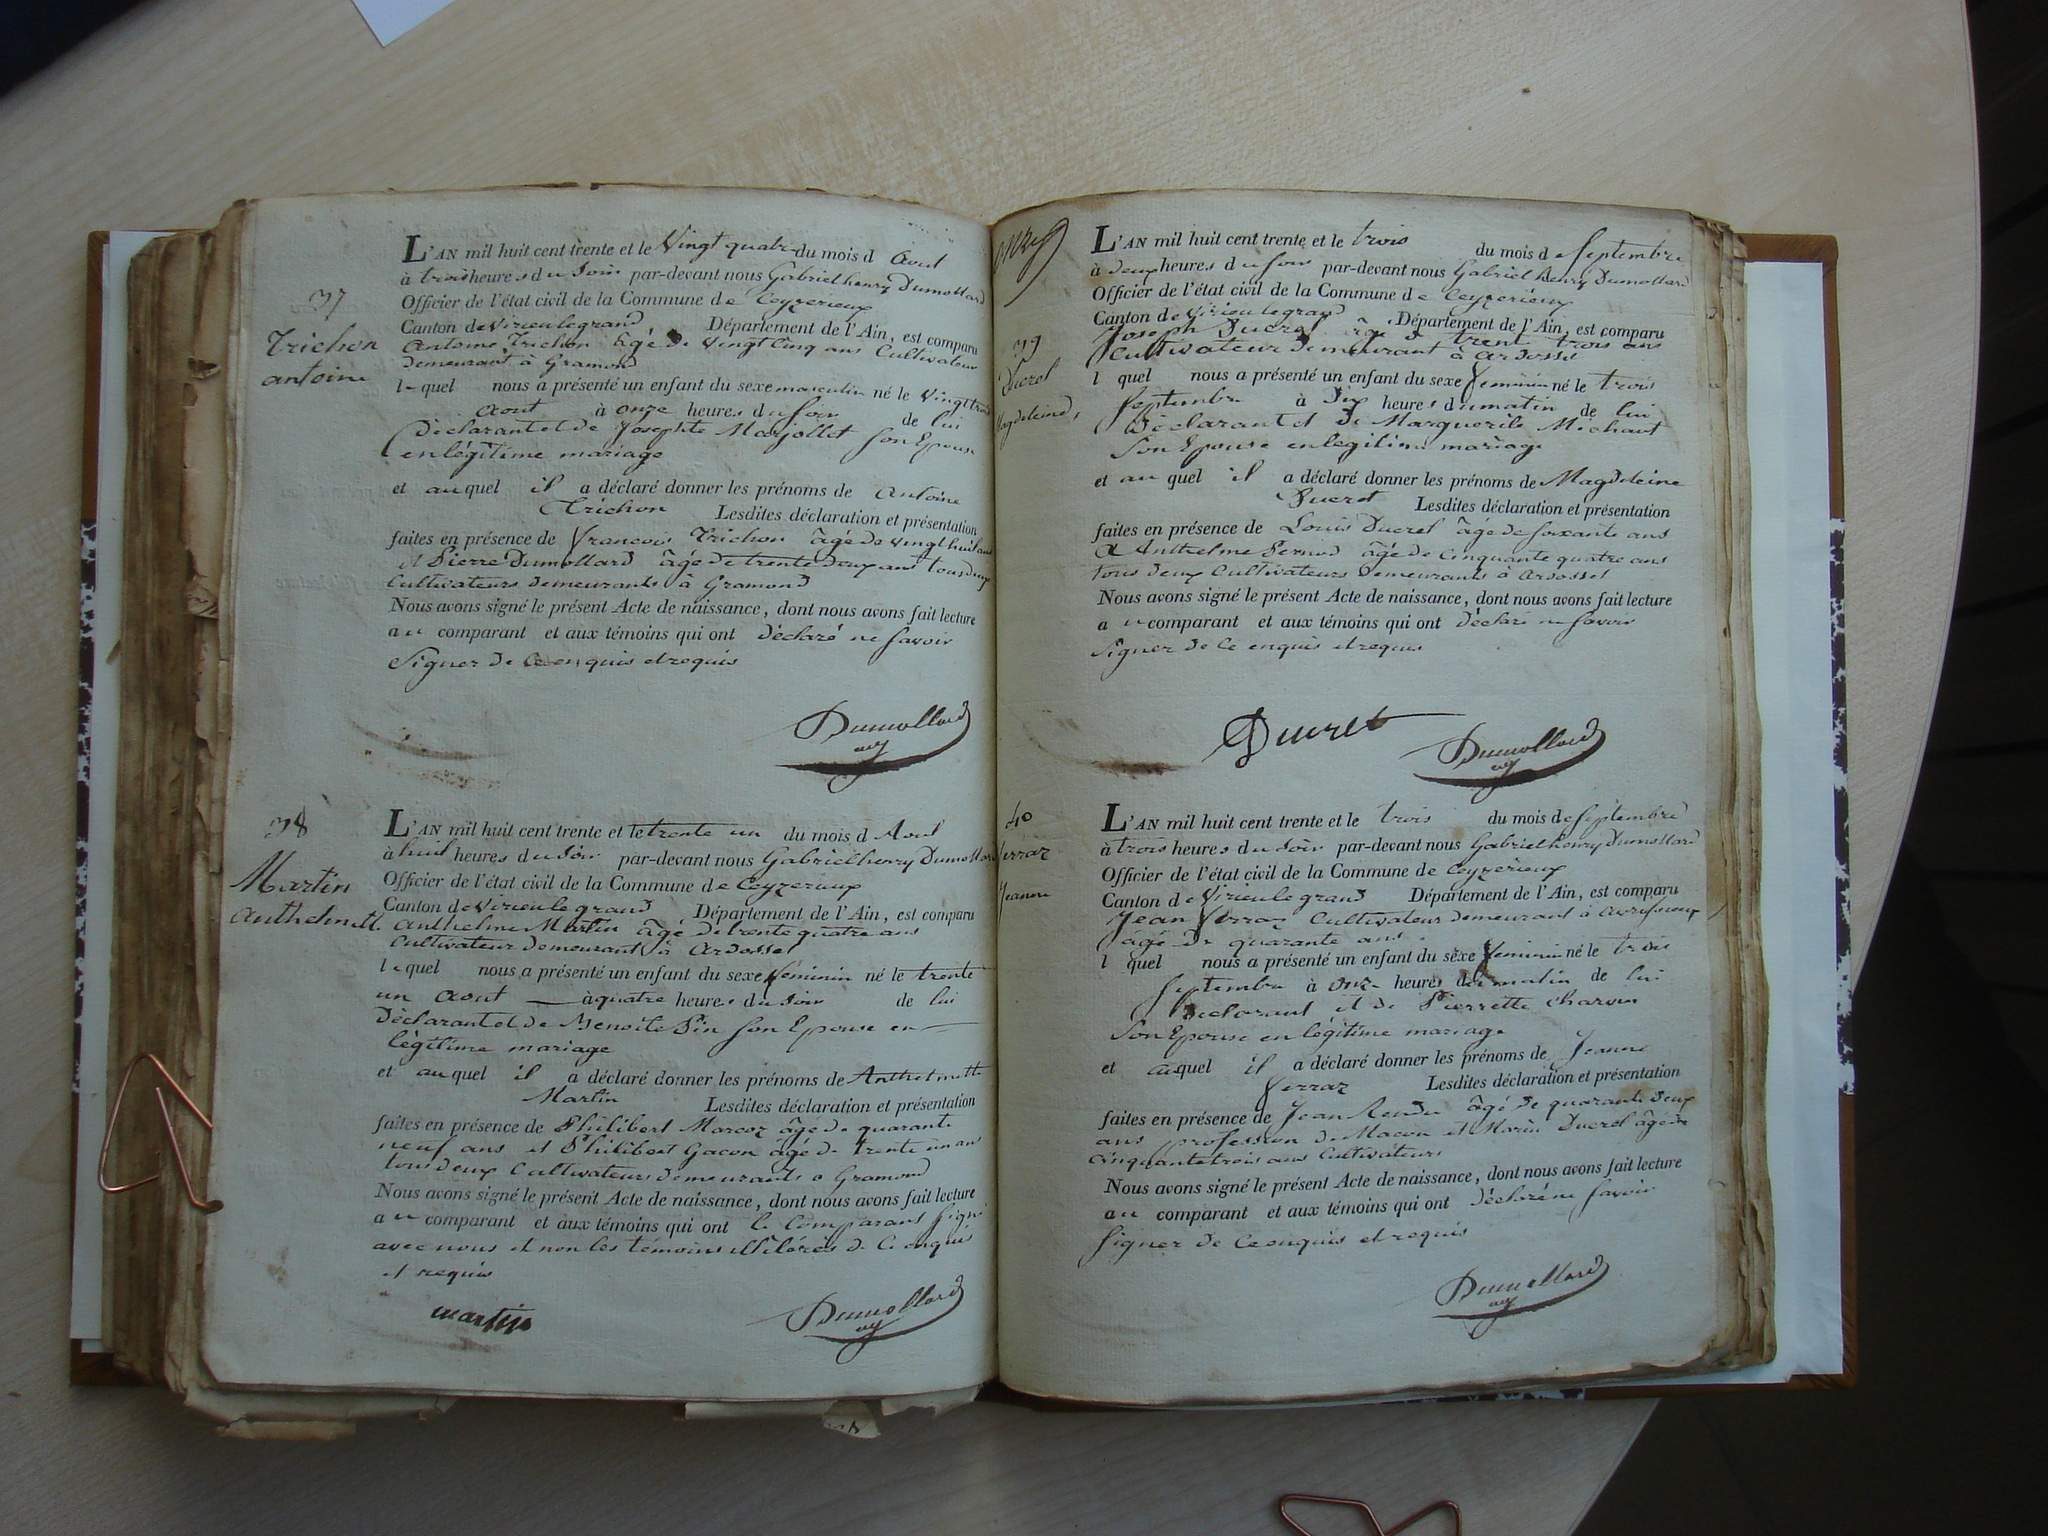 37
Trichon
antoine
L'AN mil huit cent trente et le Vingt quatre du mois d Aout
à trois heures du Soir par-devant nous Gabriel henry Dumollard
Officier de l'état civil de la Commune de Ceyzerieux
Canton de Virieu le grand Département de l'Ain, est comparu
Antoine Trichon âgé de Vingt Cinq ans Cultivateur
demeurant à Gramond
lequel nous a présenté un enfant du sexe masculin né le Vingt trois
Aout à onze heures du Soir de lui
Déclarant et de Josephte Marjollet Son Epouse
en légitime mariage
et auquel il a déclaré donner les prénoms de Antoine
Trichon Lesdites déclaration et présentation
faites en présence de Francois Trichon âgé de Vingt huit ans
et Pierre Dumollard âgé de trente deux ans tous deux
Cultivateurs demeurants à Gramond
Nous avons signé le présent Acte de naissance, dont nous avons fait lecture
au comparant et aux témoins qui ont déclaré ne Savoir
Signer de Ce enquis et requis
Dumollard
38
Martin
Anthelmette
L'AN mil huit cent trente et le trente un du mois d Aout
à huit heures du Soir par-devant nous Gabriel henry Dumollard
Officier de l'état civil de la Commune de Ceyzerieux
Canton de Virieu le grand Département de l'Ain, est comparu
Anthelme Martin âgé de trente quatre ans
Cultivateur demeurant à Ardosset
lequel nous a présenté un enfant du sexe féminin né le trente
un Aout à quatre heures du Soir de lui
Déclarant et de Benoite Pin Son Epouse en
légitime mariage
et auquel il a déclaré donner les prénoms de Anthelmette
Martin Lesdites déclaration et présentation
faites en présence de Philibert Marcoz âgé de quarante
neuf ans et Philibert Gacon âgé de trente un ans
tous deux Cultivateurs demeurants a Gramond
Nous avons signé le présent Acte de naissance, dont nous avons fait lecture
au comparant et aux témoins qui ont le Comparant Signé
avec nous et non les témoins illitérés de Ce enquis
et requis
martin
Dumollard
onze
39
Ducret
Magdeleine
L'AN mil huit cent trente et le trois du mois de Septembre
à deux heures du Soir par-devant nous Gabriel henry Dumollard
Officier de l'état civil de la Commune de Ceyzerieux
Canton de Virieu le grand Département de l'Ain, est comparu
Joseph Ducret âgé de trent trois ans
Cultivateur demeurant à Ardosset
lequel nous a présenté un enfant du sexe féminin né le trois
Septembre à Dix heures du matin de lui
Déclarant et de Marguerite Michaut
Son Epouse en legitime mariage
et auquel il a déclaré donner les prénoms de Magdeleine
Ducret Lesdites déclaration et présentation
faites en présence de Louis Ducret âgé de soixante ans
et Anthelme Pernod âgé de cinquante quatre ans
tous deux Cultivateurs demeurants à Ardosset
Nous avons signé le présent Acte de naissance, dont nous avons fait lecture
au comparant et aux témoins qui ont déclaré ne Savoir
Signer de Ce enquis et requis
Ducret
Dumollard
40
Verraz
Jeanne
L'AN mil huit cent trente et le trois du mois de Septembre
à trois heures du Soir par-devant nous Gabriel henry Dumollard
Officier de l'état civil de la Commune de Ceyzerieux
Canton de Virieu le grand Département de l'Ain, est comparu
Jean Verraz Cultivateur demeurant à Avressieux
âgé de quarante ans
lequel nous a présenté un enfant du sexe féminin né le trois
Septembre à onze heures du matin de lui
Déclarant et de Pierrette Charvin
Son Epouse en légitime mariage
et auquel il a déclaré donner les prénoms de Jeanne
Verraz Lesdites déclaration et présentation
faites en présence de Jean Rendu âgé de quarante deux
ans profession de Macon et Marin Ducret âgé de
cinquante trois ans Cultivateurs
Nous avons signé le présent Acte de naissance, dont nous avons fait lecture
au comparant et aux témoins qui ont déclaré ne Savoir
Signer de Ce enquis et requis
Dumollard